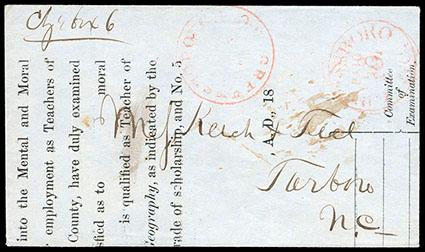 Chg box 6
into the Mental and Moral
employment as Teachers of
County, have duly examined
sfied as to moral
is qualified as Teacher of
Geography, as indicated by the
rade of scholarship, and No. 5
, A.D., 18
Committee
of
Examination.
GREENSBORO
SBORO
Tarboro
N.C.